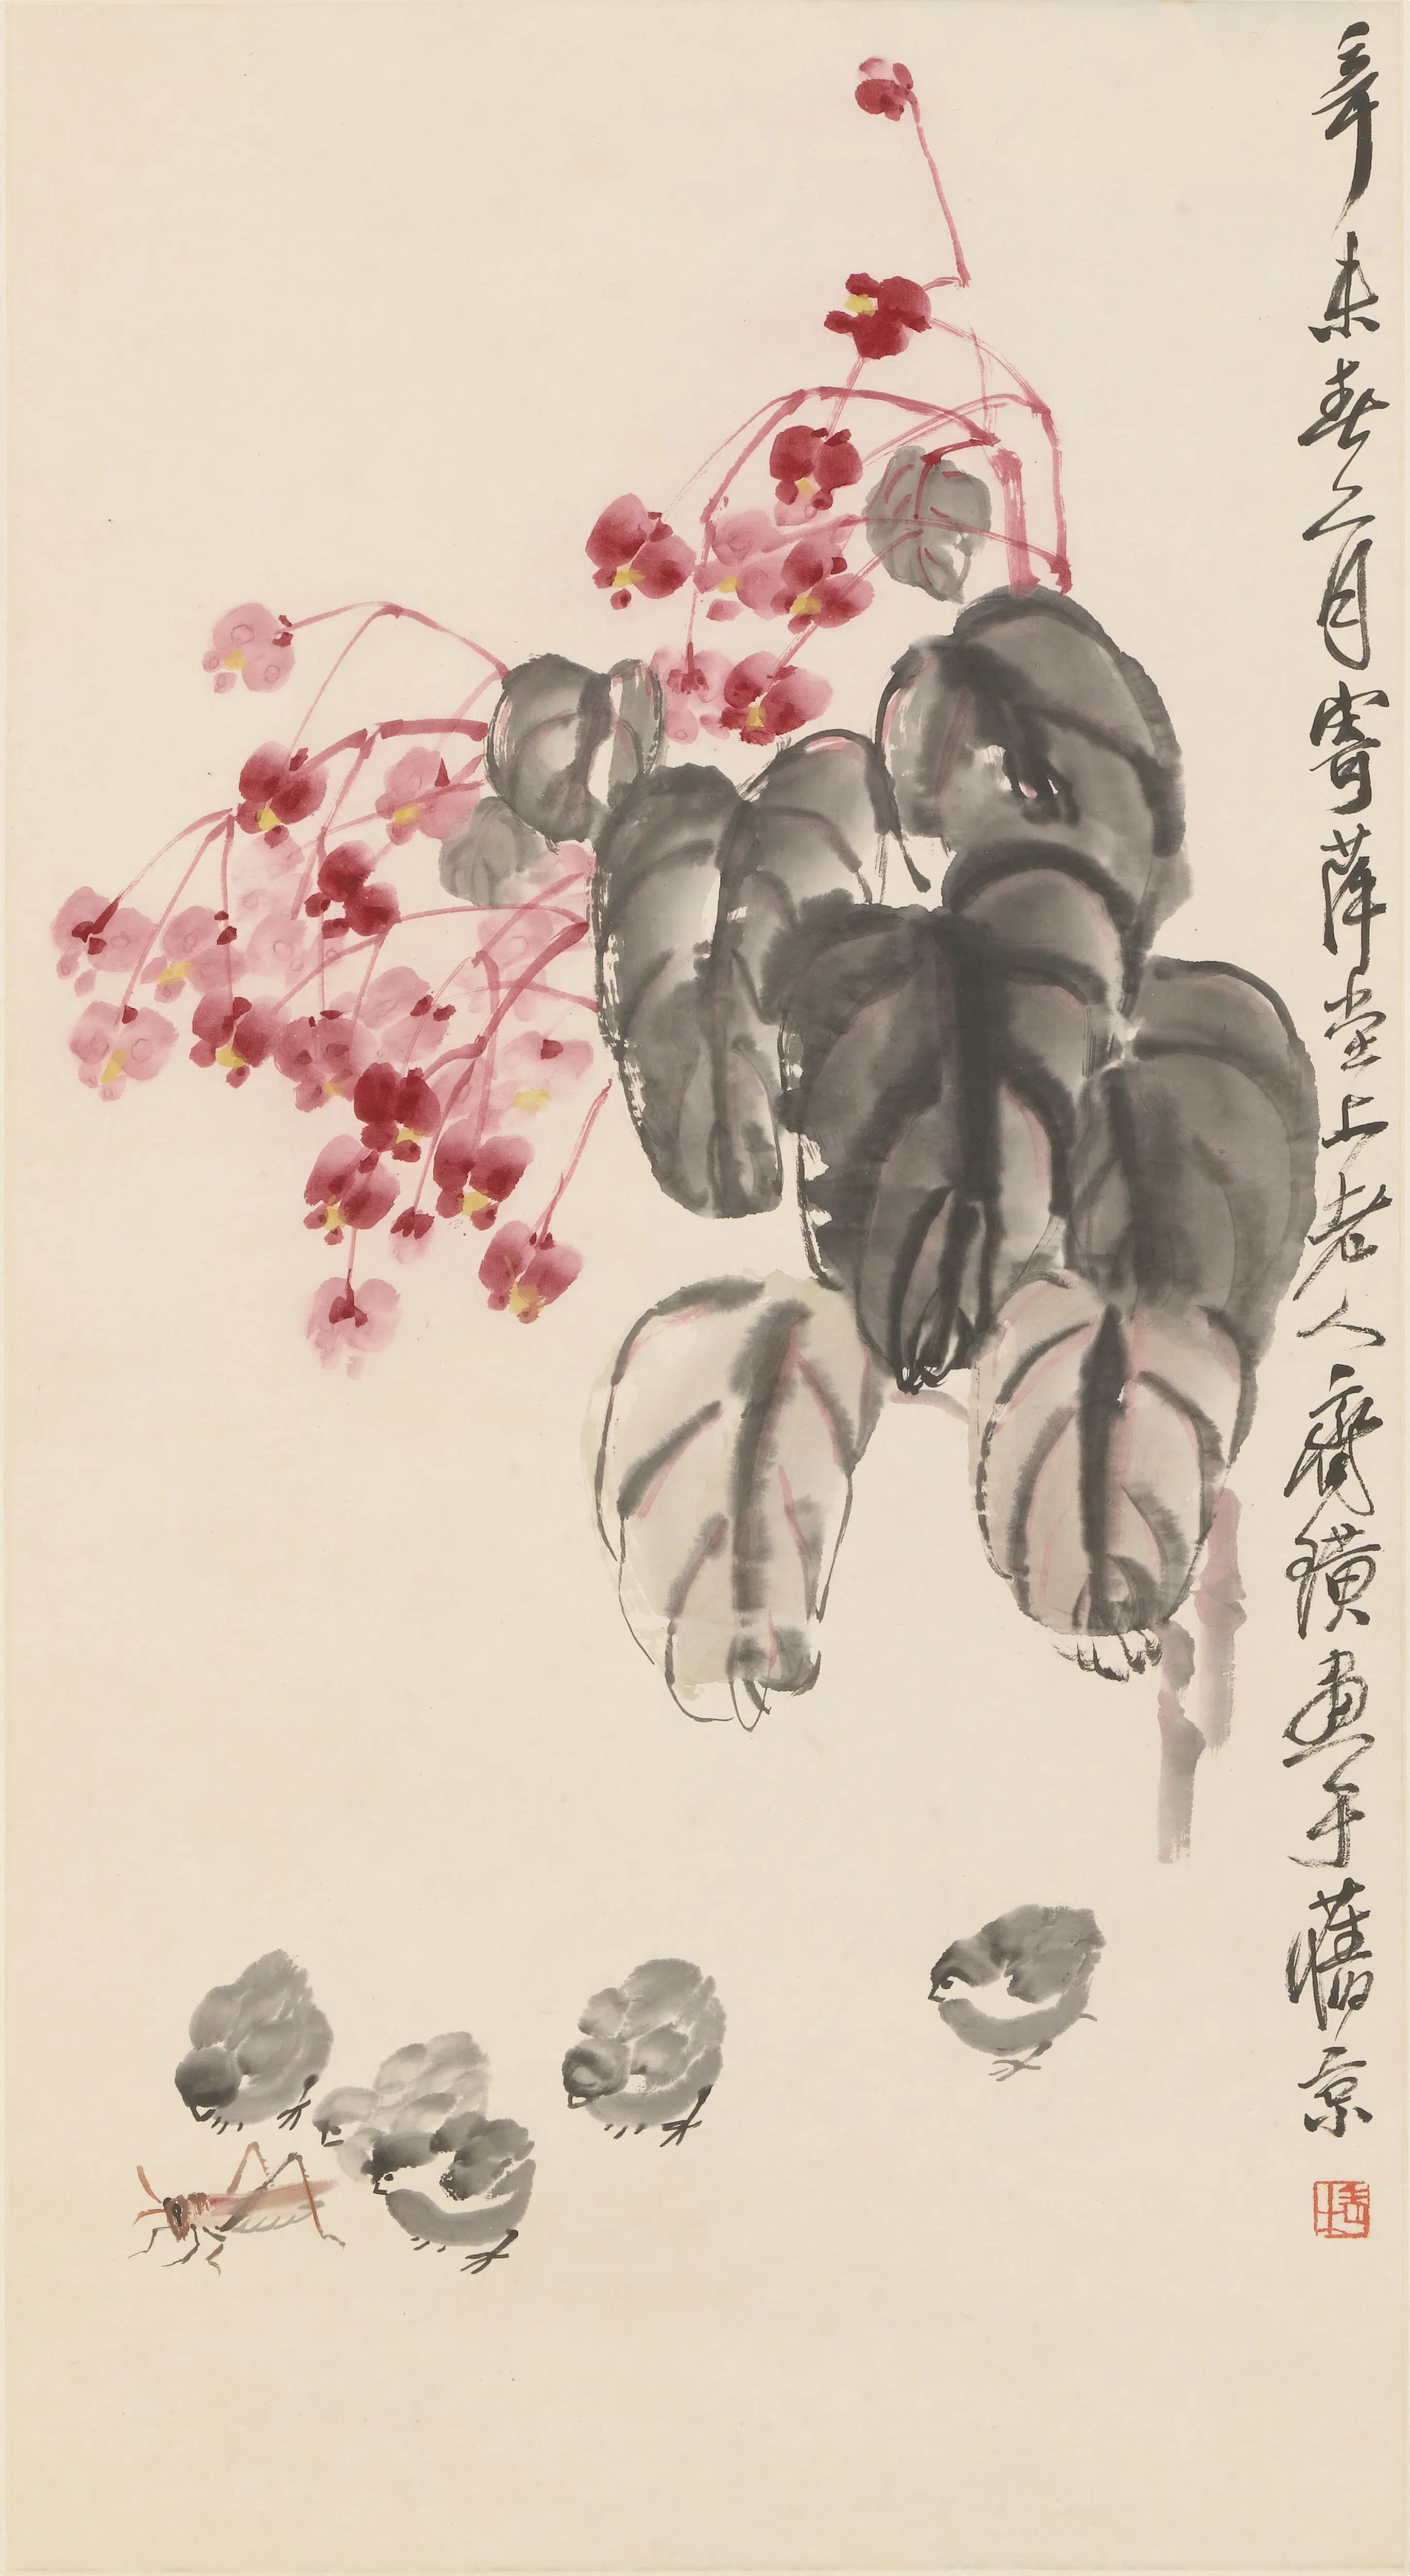 辛未春二月寄萍堂上老人齊璜畫于舊京